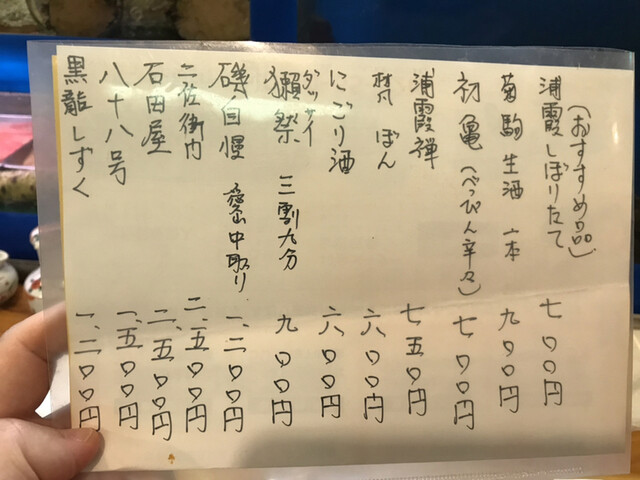 (おすすめ品)
浦霞しぼりたて 七〇〇円
菊駒生酒 一本 九〇〇円
初亀(べっぴん辛々)七〇〇円
浦霞禅 七五〇円
梵 ぼん 六〇〇円
にごり酒 六〇〇円
ダッサイ
獺祭 三割九分 九〇〇円
磯自慢 愛山中取り 一、二〇〇円
二左衛門 二、五〇〇円
石田屋 二、五〇〇円
八十八号 一、五〇〇円
黒龍しずく 一、二〇〇円